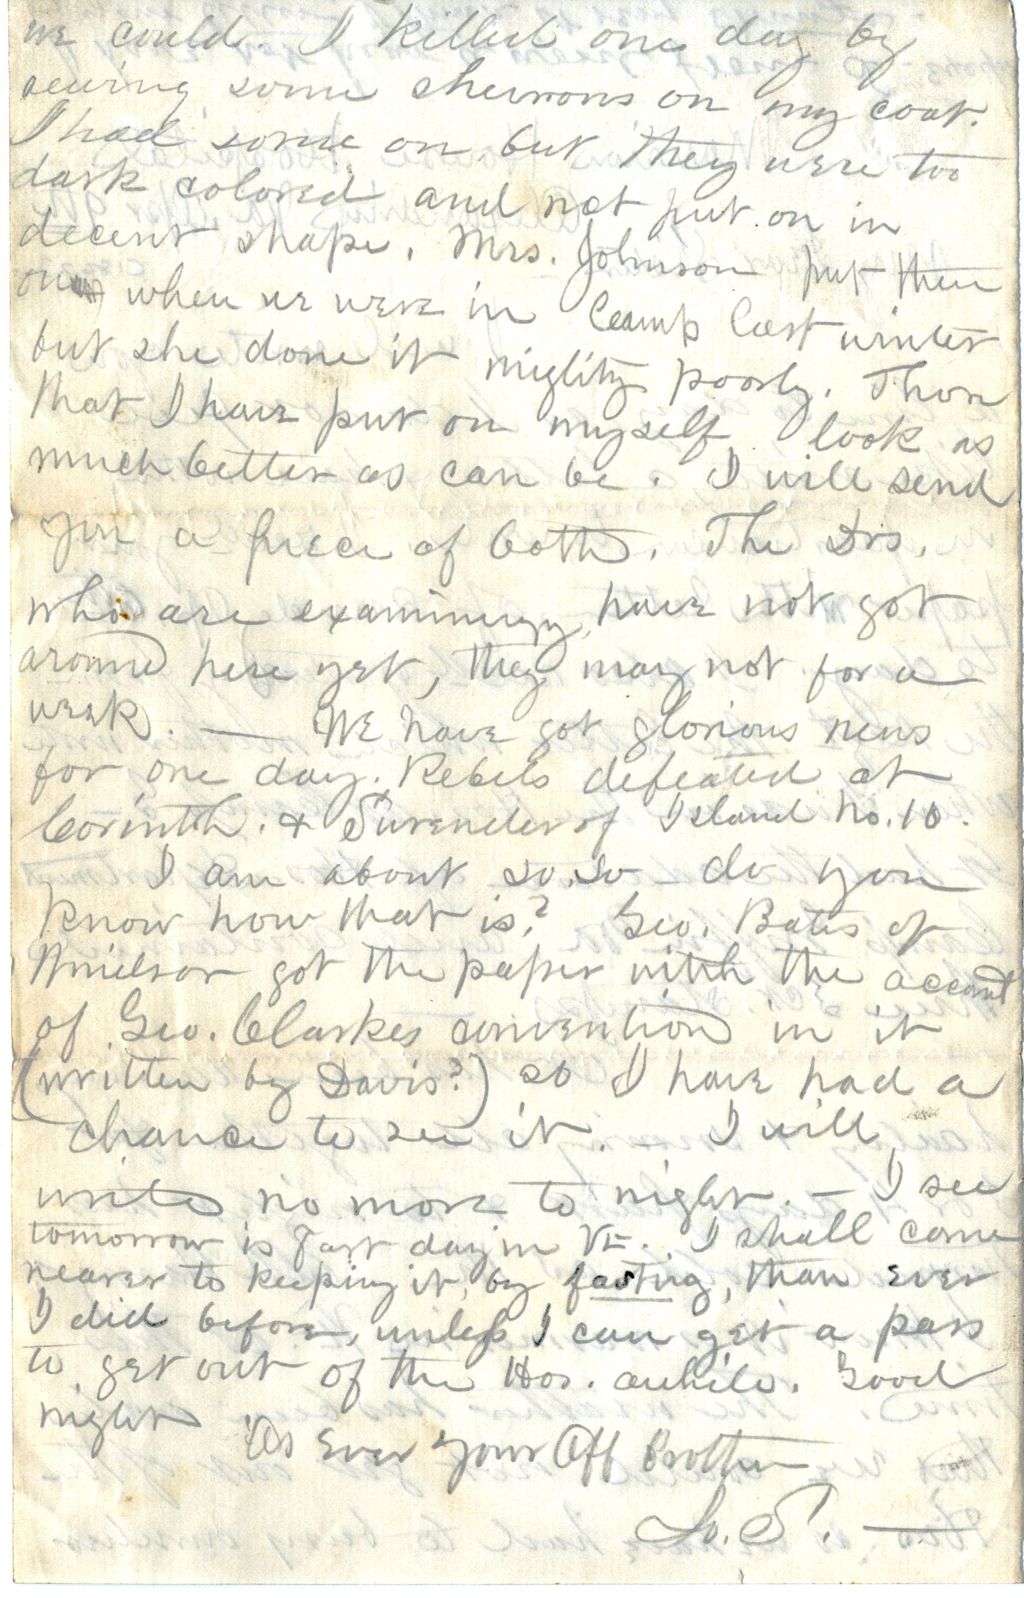 we could. I killed one day by
sewing some chevrons on my coat.
I had some on but they were too
dark colored and not put on in
decent shape. Mrs. Johnson put them
on when we were in Camp last winter
but she done it mighty poorly. Thos
that I have put on myself look as
much better as can be. I will send
you a piece of both. The Drs.
who are examining, have not got
around here yet, they may not for a
week. — We have got glorious news
for one day. Rebels defeated at
Corinth. & Surender of Island No. 10.
I am about so, so — do you
know how that is? Geo. Bates of
Windsor got the paper with the account
of Geo. Clarkes convention in it
(written by Davis?) so I have had a
chance to see it. I will
write no more to night. — I see
tomorrow is Fast day in Vt. I shall come
nearer to keeping it, by fasting, than ever
I did before, unless I can get a pass
to get out of the Hos. awhile. Good
night
As Ever Your Aff Brother